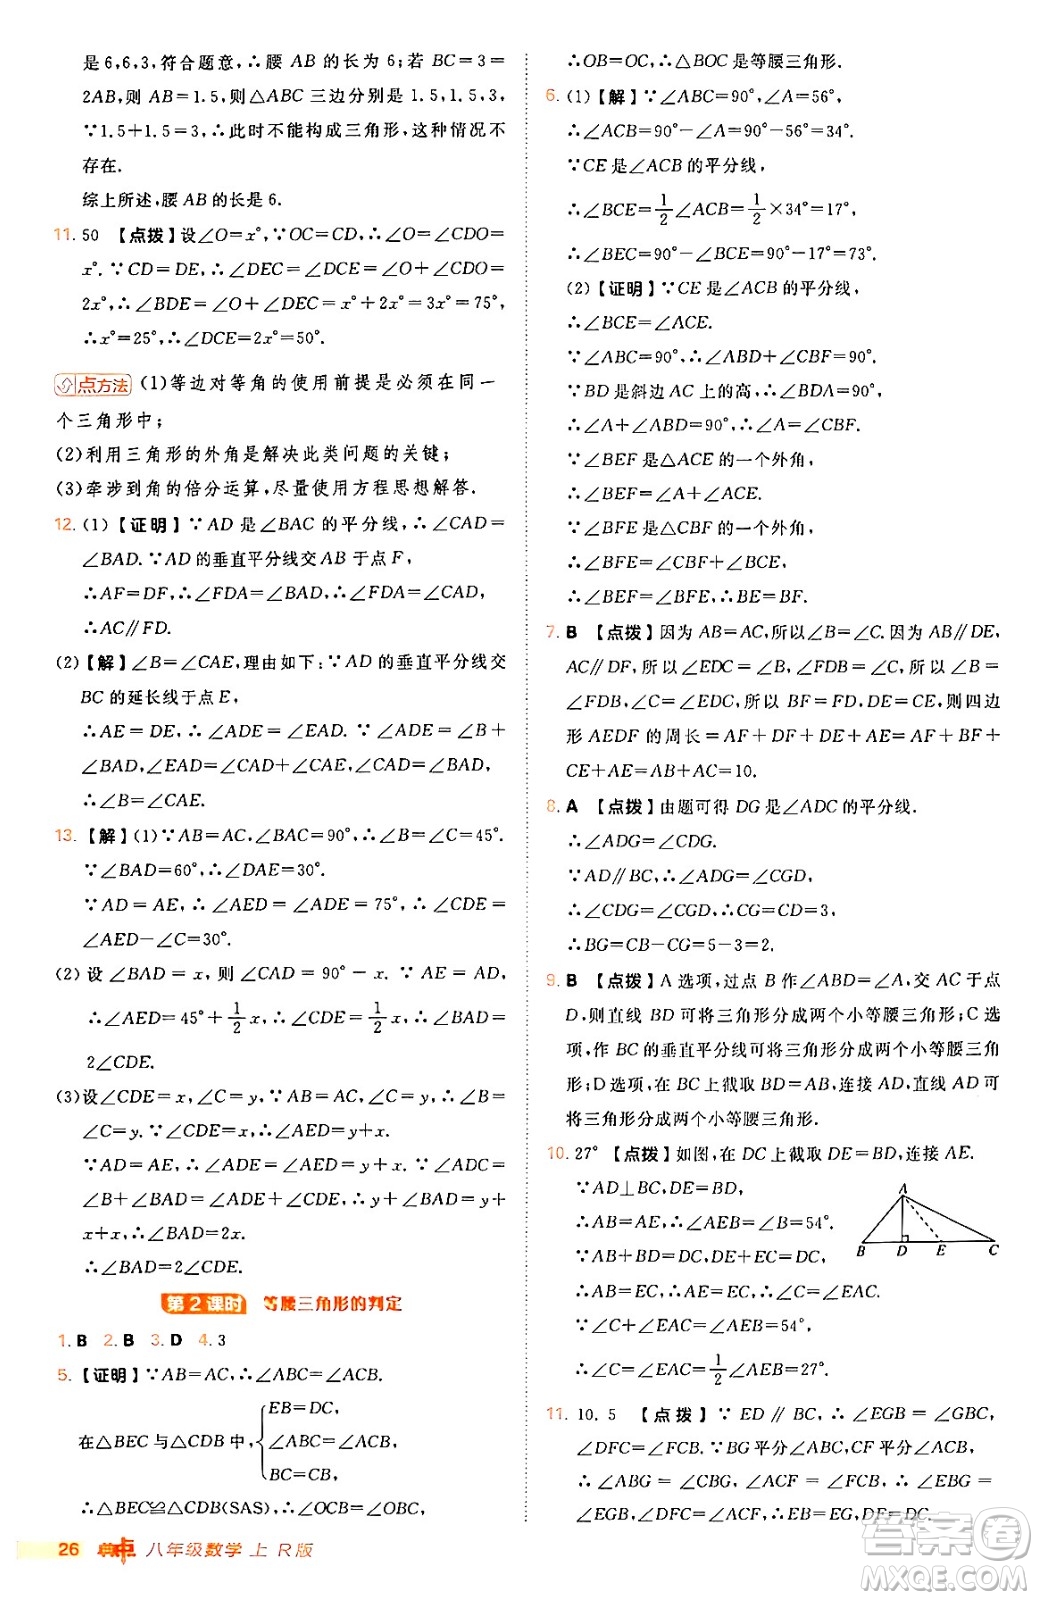 是6,6,3,符合题意,∴腰 AB 的长为 6;若 BC=3=
2AB,则 AB=1.5,则△ABC 三边分别是 1.5,1.5,3,
∵1.5+1.5=3,∴此时不能构成三角形,这种情况不
存在.
综上所述,腰 AB 的长是 6.
11. 50 【点拨】设∠O=x°,∵OC=CD,∴∠O=∠CDO=
x°.∵CD=DE,∴∠DEC=∠DCE=∠O+∠CDO=
2x°,∴∠BDE=∠O+∠DEC=x°+2x°=3x°=75°,
∴x°=25°,∴∠DCE=2x°=50°.
点方法 (1)等边对等角的使用前提是必须在同一
个三角形中;
(2)利用三角形的外角是解决此类问题的关键;
(3)牵涉到角的倍分运算,尽量使用方程思想解答.
12. (1)【证明】∵AD 是∠BAC 的平分线,∴∠CAD=
∠BAD.∵AD 的垂直平分线交 AB 于点 F,
∴AF=DF,∴∠FDA=∠BAD,∴∠FDA=∠CAD,
∴AC∥FD.
(2)【解】∠B=∠CAE,理由如下:∵AD 的垂直平分线交
BC 的延长线于点 E,
∴AE=DE,∴∠ADE=∠EAD.∵∠ADE=∠B+
∠BAD,∠EAD=∠CAD+∠CAE,∠CAD=∠BAD,
∴∠B=∠CAE.
13. 【解】(1)∵AB=AC,∠BAC=90°,∴∠B=∠C=45°.
∵∠BAD=60°,∴∠DAE=30°.
∵AD=AE,∴∠AED=75°,∴∠CDE=
∠AED-∠C=30°.
(2)设∠BAD=x,则∠CAD=90°-x.∵AE=AD,
∴∠AED=45°+1/2 x,∴∠CDE=1/2 x,∴∠BAD=
2∠CDE.
(3)设∠CDE=x,∠C=y,∵AB=AC,∴∠B=
∠C=y.∵∠CDE=x,∴∠AED=y+x.
∵AD=AE,∴∠ADE=∠AED=y+x.∵∠ADC=
∠B+∠BAD=∠ADE+∠CDE,∴∠BAD+y=y+
x+x,∴∠BAD=2x.
∴∠BAD=2∠CDE.
第2课时 等腰三角形的判定
1. B 2. B 3. D 4. 3
5. 【证明】∵AB=AC,∴∠ABC=∠ACB.
在△BEC与△CDB中,{EB=DC,
∠ABC=∠ACB,
BC=CB,
∴△BEC≌△CDB(SAS),∴∠OCB=∠OBC,
26 典中点 八年级数学 上 R版
∴OB=OC,∴△BOC是等腰三角形.
6. (1)【解】∵∠ABC=90°,∠A=56°,
∴∠ACB=90°-∠A=90°-56°=34°.
∵CE 是∠ACB 的平分线,
∴∠BCE=1/2∠ACB=1/2×34°=17°,
∴∠BEC=90°-∠BCE=90°-17°=73°.
(2)【证明】∵CE 是∠ACB 的平分线,
∴∠BCE=∠ACE.
∵∠ABC=90°,∴∠ABD+∠CBF=90°.
∵BD 是斜边 AC 上的高,∴∠BDA=90°,
∴∠A+∠ABD=90°,∴∠A=∠CBF.
∵∠BEF 是△AEC 的一个外角,
∴∠BEF=∠A+∠ACE.
∵∠BFE 是△CBF 的一个外角,
∴∠BFE=∠CBF+∠BCE,
∴∠BEF=∠BFE,∴BE=BF.
7. B 【点拨】因为 AB=AC,所以∠B=∠C.因为 AB∥DE,
AC∥DF,所以∠EDC=∠B=∠C,∠B=
∠FDB,∠C=∠EDC,所以 BF=FD,DE=CE,则四边
形 AEDF 的周长=AF+DF+DE+AE=AF+
BF+CE+AE=AB+AC=10.
8. A 【点拨】由题可得 DG 是∠ADC 的平分线.
∴∠ADG=∠CDG.
∵AD∥BC,∴∠ADG=∠CGD,
∴∠CDG=∠CGD,∴CG=CD=3,
∴BG=CB-CG=5-3=2.
9. B 【点拨】A 选项,过点 B 作∠ABD=∠A,交 AC 于点
D,则直线 BD 可将三角形分成两个小等腰三角形;C 选
项,作 BC 的垂直平分线可将三角形分成两个小等腰三角
形;D 选项,在 BC 上截取 BD=AB,连接 AD,直线 AD 可
将三角形分成两个小等腰三角形.
10. 27° 【点拨】如图,在 DC 上截取 DE=BD,连接 AE.
∵AD⊥BC,DE=BD,
∴AB=AE,∴∠AEB=∠B=54°.
∵AB+BD=DC,DE+EC=DC,
∴AB=EC,∴AE=EC,
∴∠C=∠EAC.
∵∠C+∠EAC=∠AEB=54°,
∴∠C=∠EAC=1/2∠AEB=27°.
A
B D E C
11. 10.5 【点拨】∵ED∥BC,∴∠EGB=∠GBC,
∠DFC=∠FCB.∵BG 平分∠ABC,CF 平分∠ACB,
∴∠ABG=∠CBG,∠ACF=∠FCB,∴∠ABG=
∠EGB,∠DFC=∠ACF,∴EB=EG,DF=DC.
答案圈
MXQE.COM